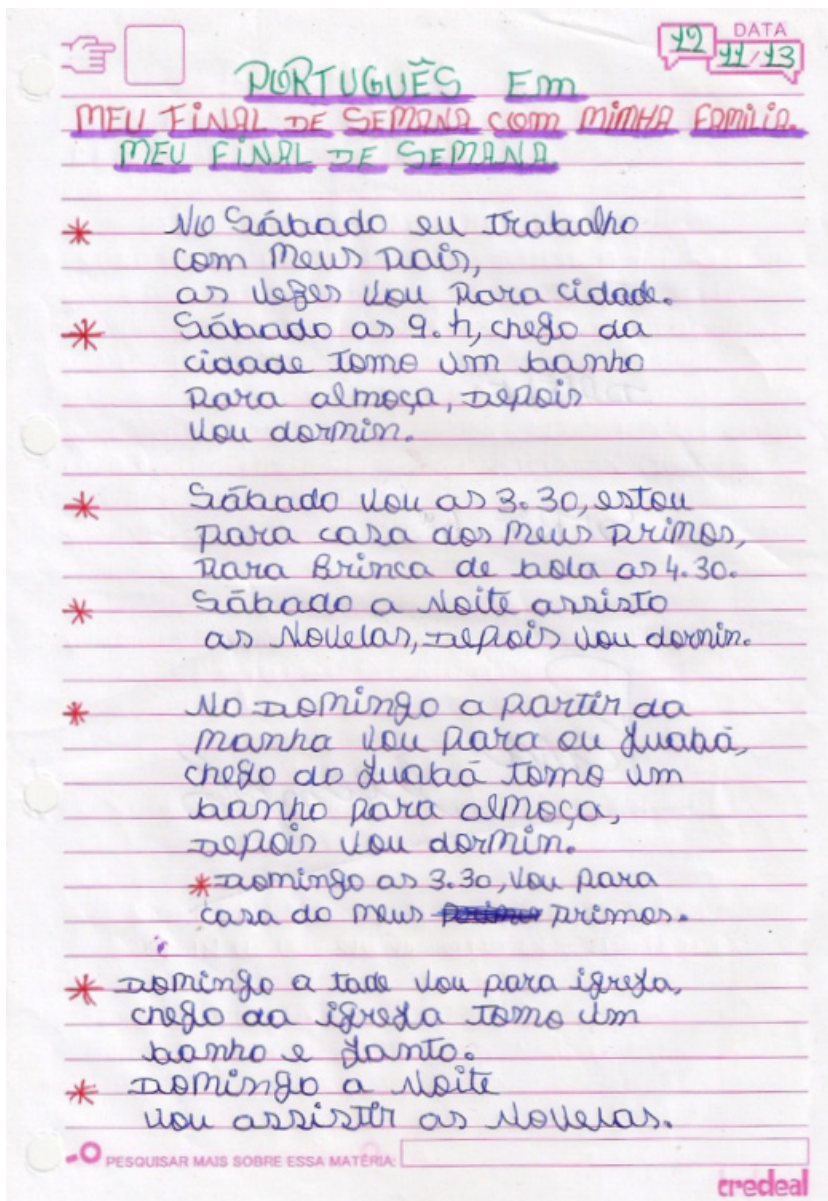 DATA
12 11/13
PORTUGUÊS Em
MEU FINAL DE SEMANA com MiMHA FAMiLiA.
MEU FINAL DE SEMANA
* No Sábado eu Trabalho
com Meus Pais,
as Vezes Vou Para cidade.
* Sábado as 9.h, chego da
cidade Tomo um banho
Para almoça, Depois
Vou dormin.
* Sábado Vou as 3.30, estou
para casa dos Meus Primos,
Para Brinca de bola as 4.30.
* Sábado a Noite assisto
as Novelas, Depois Vou dormin.
* No Domingo a Partir da
manha Vou Para ou Juabá,
chego do Juabá tomo um
banho para almoça,
Depois Vou dorMin.
* Domingo as 3.30, Vou Para
casa do Meus Primos.
* Domingo a tade Vou para igreja,
chego da igreja Tomo um
banho e Janto.
* Domingo a Noite
Vou assistir as Novelas.
PESQUISAR MAIS SOBRE ESSA MATÉRIA:
credeal